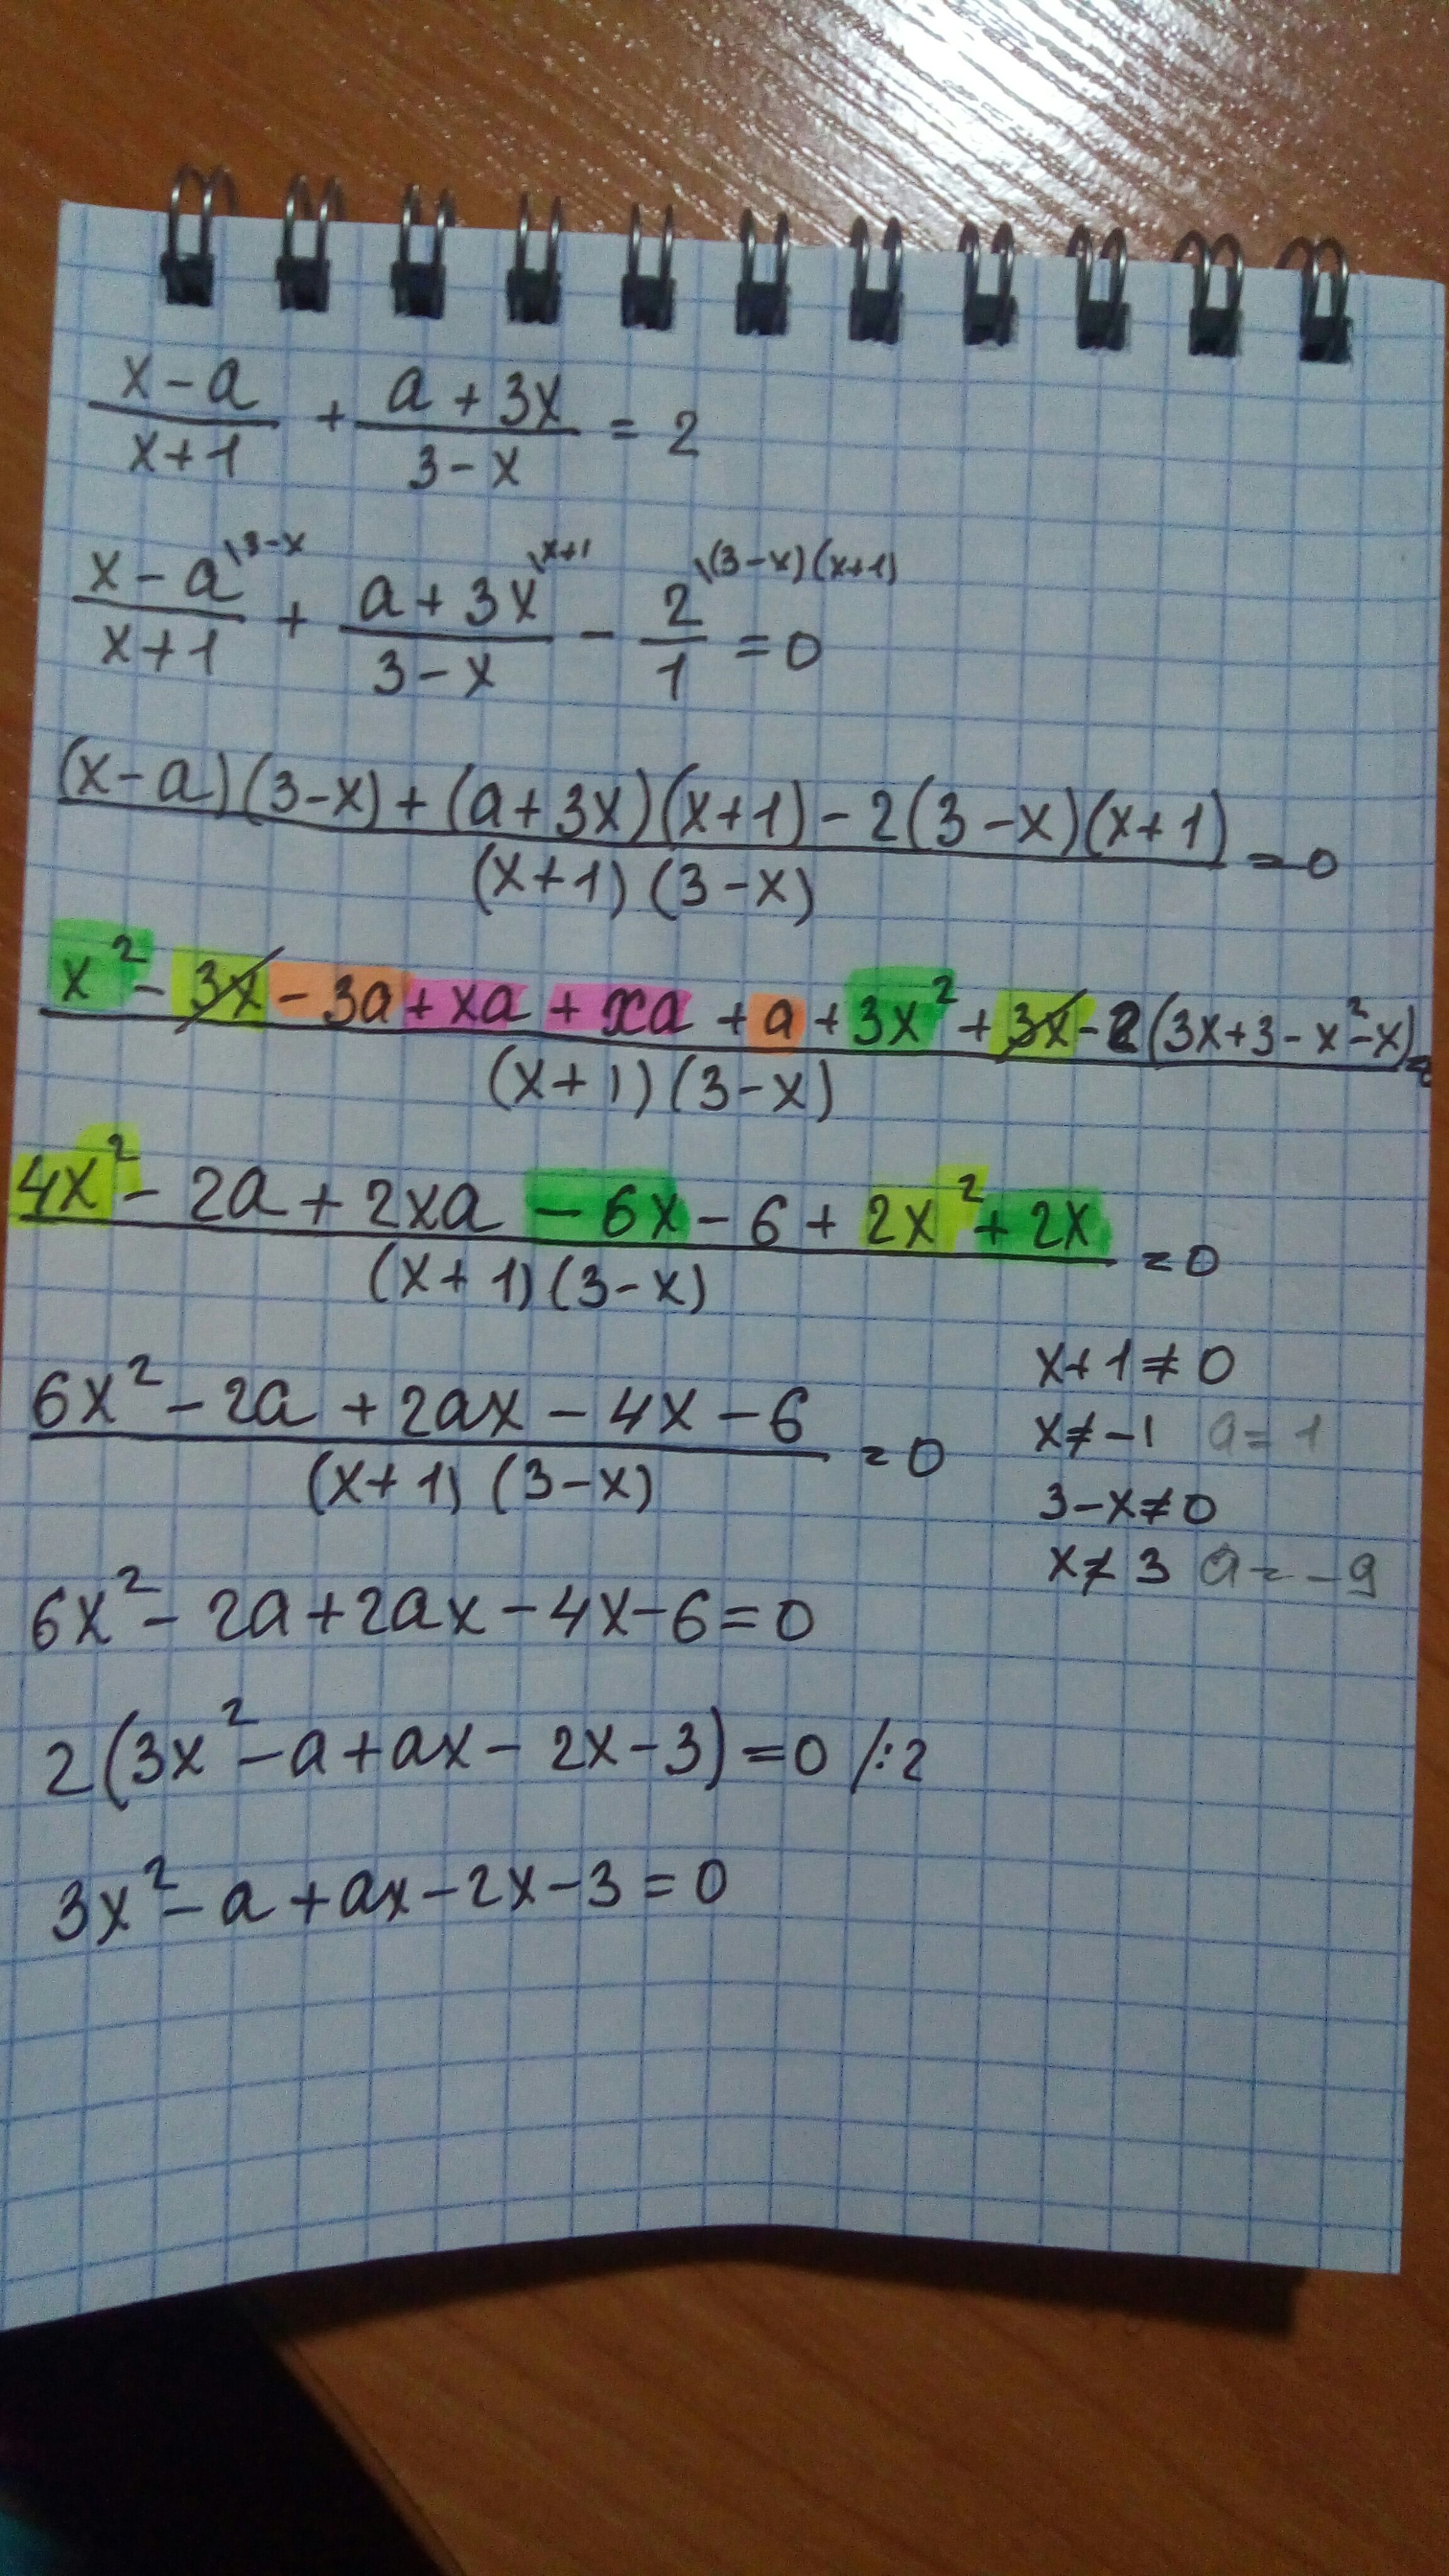 (x-a)/(x+1) + (a+3x)/(3-x) = 2
(x-a)/(x+1) \3-x + (a+3x)/(3-x) \x+1 - 2/1 \(3-x)(x+1) = 0
((x-a)(3-x)+(a+3x)(x+1)-2(3-x)(x+1))/((x+1)(3-x)) = 0
(x²-3x-3a+xa+xa+a+3x²+3x-2(3x+3-x²-x))/((x+1)(3-x)) =
(4x²-2a+2xa-6x-6+2x²+2x)/((x+1)(3-x)) = 0
(6x²-2a+2ax-4x-6)/((x+1)(3-x)) = 0
x+1≠0
x≠-1 a=1
3-x≠0
x≠3 a=-9
6x²-2a+2ax-4x-6=0
2(3x²-a+ax-2x-3)=0 /:2
3x²-a+ax-2x-3=0